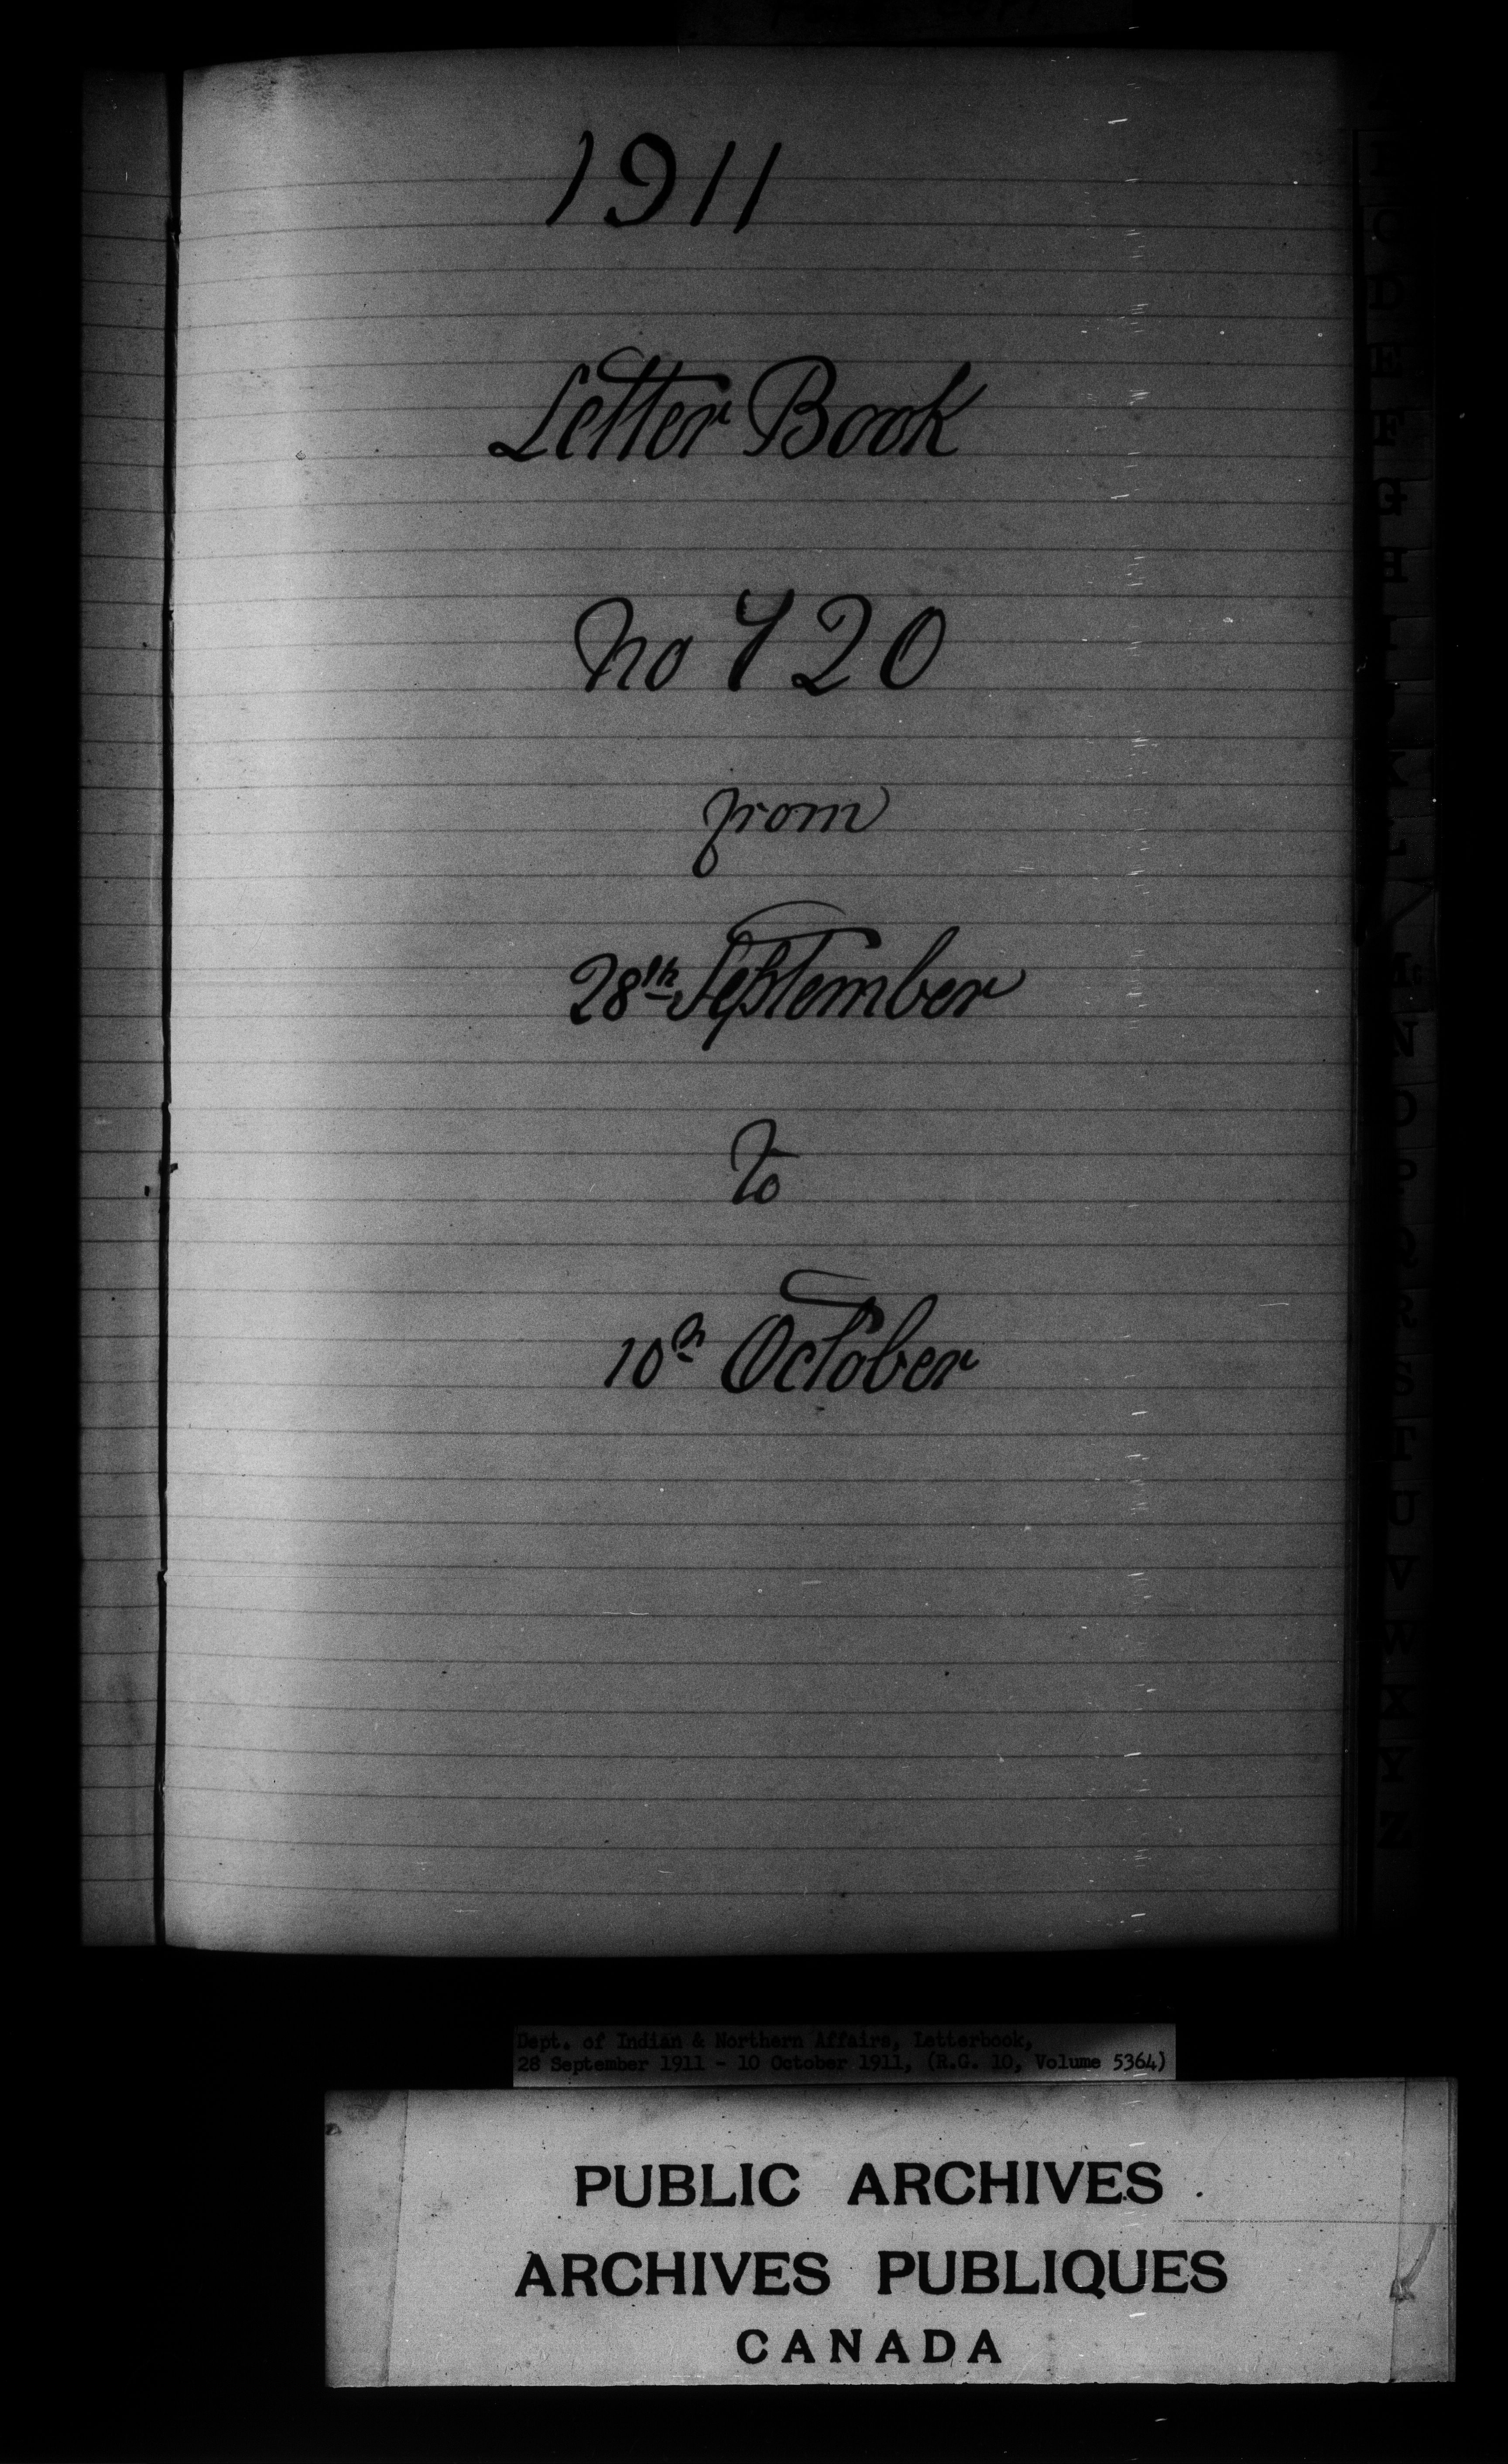 1911
Letter Book
No 720
from
28th September
To
10th October
Dept. of Indian & Northern Affairs, Letterbook,
28 September 1911 - 10 October 1911, (R.G. 10, Volume 5364)
PUBLIC ARCHIVES
ARCHIVES PUBLIQUES
CANADA